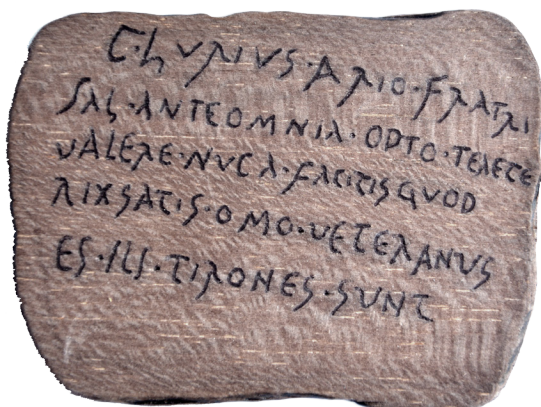 C·LURIUS·ARIO·FRATRI
SAL·ANTEOMNIA·OPTO·TERETE
UALERE·NUCA·FACITISQUOD
RIXSATIS·OMO·UETERANUS
ES·ILI·TIRONES·SUNT